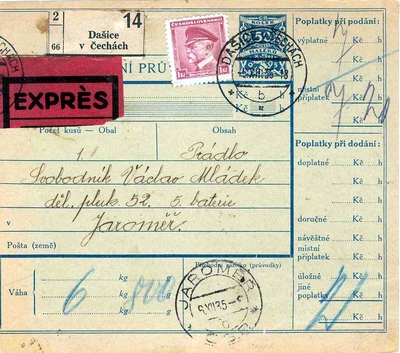 2
66
Dašice
v Čechách
14
EXPRÈS
ČESKOSLOVENSKO
50
DAŠICE V ČECHÁCH
b
Poplatky při podání:
výplatné Kč h
Kč h
místní
příplatek Kč h
Kč h
Počet kusů — Obal
Obsah
1
Prádlo
Svobodník Václav Mládek
děl. pluk 52, 5. baterie
Jaroměř
Pošta (země)
Poplatky při dodání:
doplatné Kč h
Kč h
Kč h
doručné Kč h
návěštné Kč h
místní
příplatek Kč h
úložné Kč h
jiné
poplatky Kč h
Váha
6 kg 800 g
kg g
kg g
JAROMĚŘ
6.XII.35